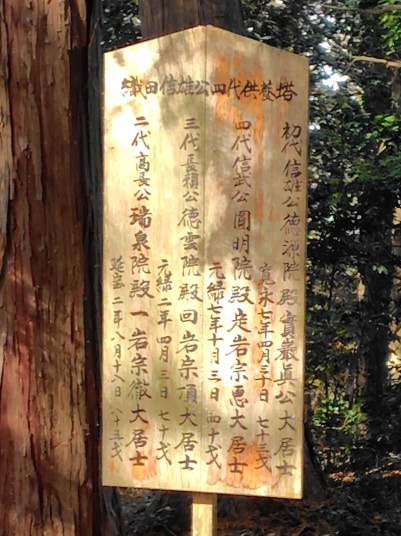 織田信雄公四代供養塔
初代信雄公徳源院殿實巌眞公大居士
寛永七年四月三十日 七十三才
四代信武公圓明院殿走岩宗恵大居士
元禄七年十月三日 四十才
三代長頼公徳雲院殿回岩宗頂大居士
元禄二年四月三日 七十才
二代高長公瑞泉院殿一岩宗徹大居士
延宝二年八月十八日 八十五才